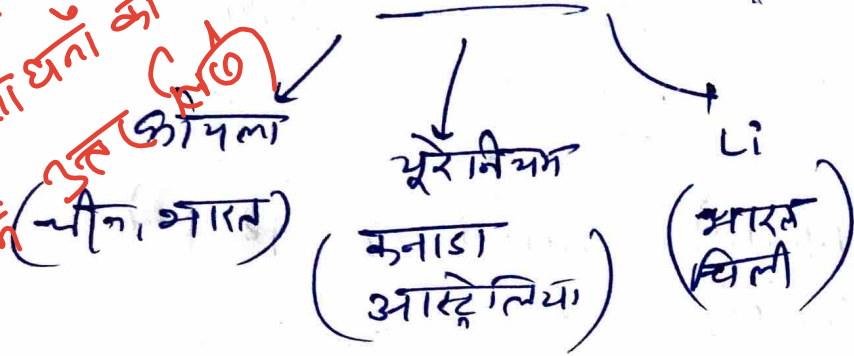 धनों का
कोयला
(चीन, भारत)
यूरेनियम
(कनाडा
आस्ट्रेलिया)
Li
(भारत
चिली)